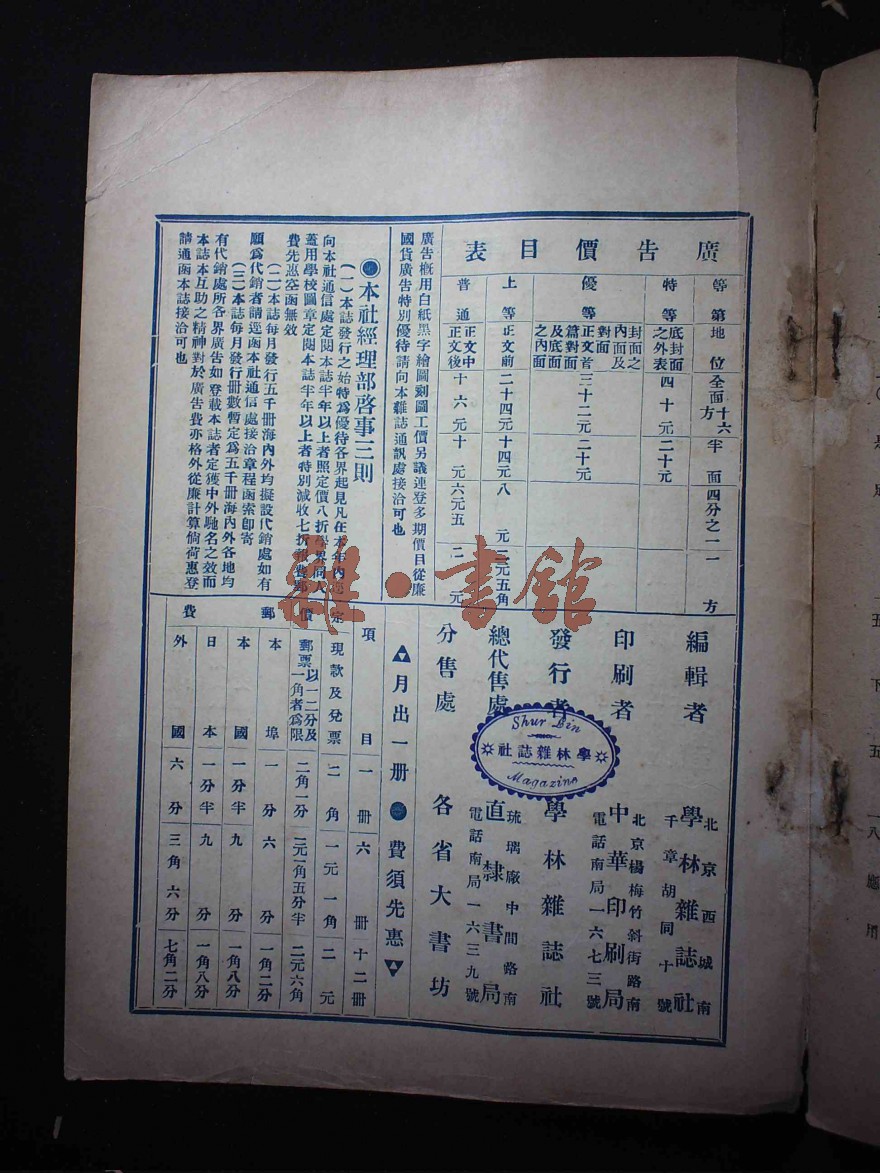 廣告價目表
等第 地位 全面十六方 半面 四分之一 一方
特等 底封面之外表 四十元 二十元
優等 封面之內面及對面 正文首篇對面及底面之內面 三十二元 二十元
上等 正文前 二十四元 十四元 八元 三元五角
普通 正文中 正文後 十六元 十元 六元五 二元
廣告概用白紙黑字繪圖刻圖工價另議連登多期價目從廉
國貨廣告特別優待請向本雜誌通訊處接洽可也
◉本社經理部啓事三則
(一)本誌發行之始特爲優待各界起見凡在本年內
向本社通信處定閱本誌半年以上者照定價八折學界同人
蓋用學校圖章定閱本誌半年以上者特別減收七折報費郵
費先惠空函無效
(二)本誌每月發行五千冊海內外均擬設代銷處如有
願爲代銷者請逕函本社通信處接洽章程函索卽寄
(三)本誌每月發行冊數暫定爲五千冊海內外各地均
有代銷處所各界廣告如登載本誌者定獲中外馳名之效而
本誌本互助之精神對於廣告費亦格外從廉計算倘荷惠登
請通函本誌接洽可也
編輯者 學林雜誌社
北京西城南
千章胡同十號
印刷者 中華印刷局
北京楊梅竹斜街路南
電話南局一六七三號
發行者 學林雜誌社
總代售處 直隸書局
琉璃廠中間路南
電話南局一六三九號
分售處 各省大書坊
Shur Lin
學林雜誌社
Magazine
▲月出一册◉費須先惠▼
項目 一冊 六冊 十二冊
定價 現款及兌票 二角 一元一角 二元
郵票以一二分及一角者爲限 二角一分 一元一角五分半 二元六角
郵費 本埠 一分 六分 一角二分
本國 一分半 九分 一角八分
日本 一分半 九分 一角八分
外國 六分 三角六分 七角二分
雜·書館